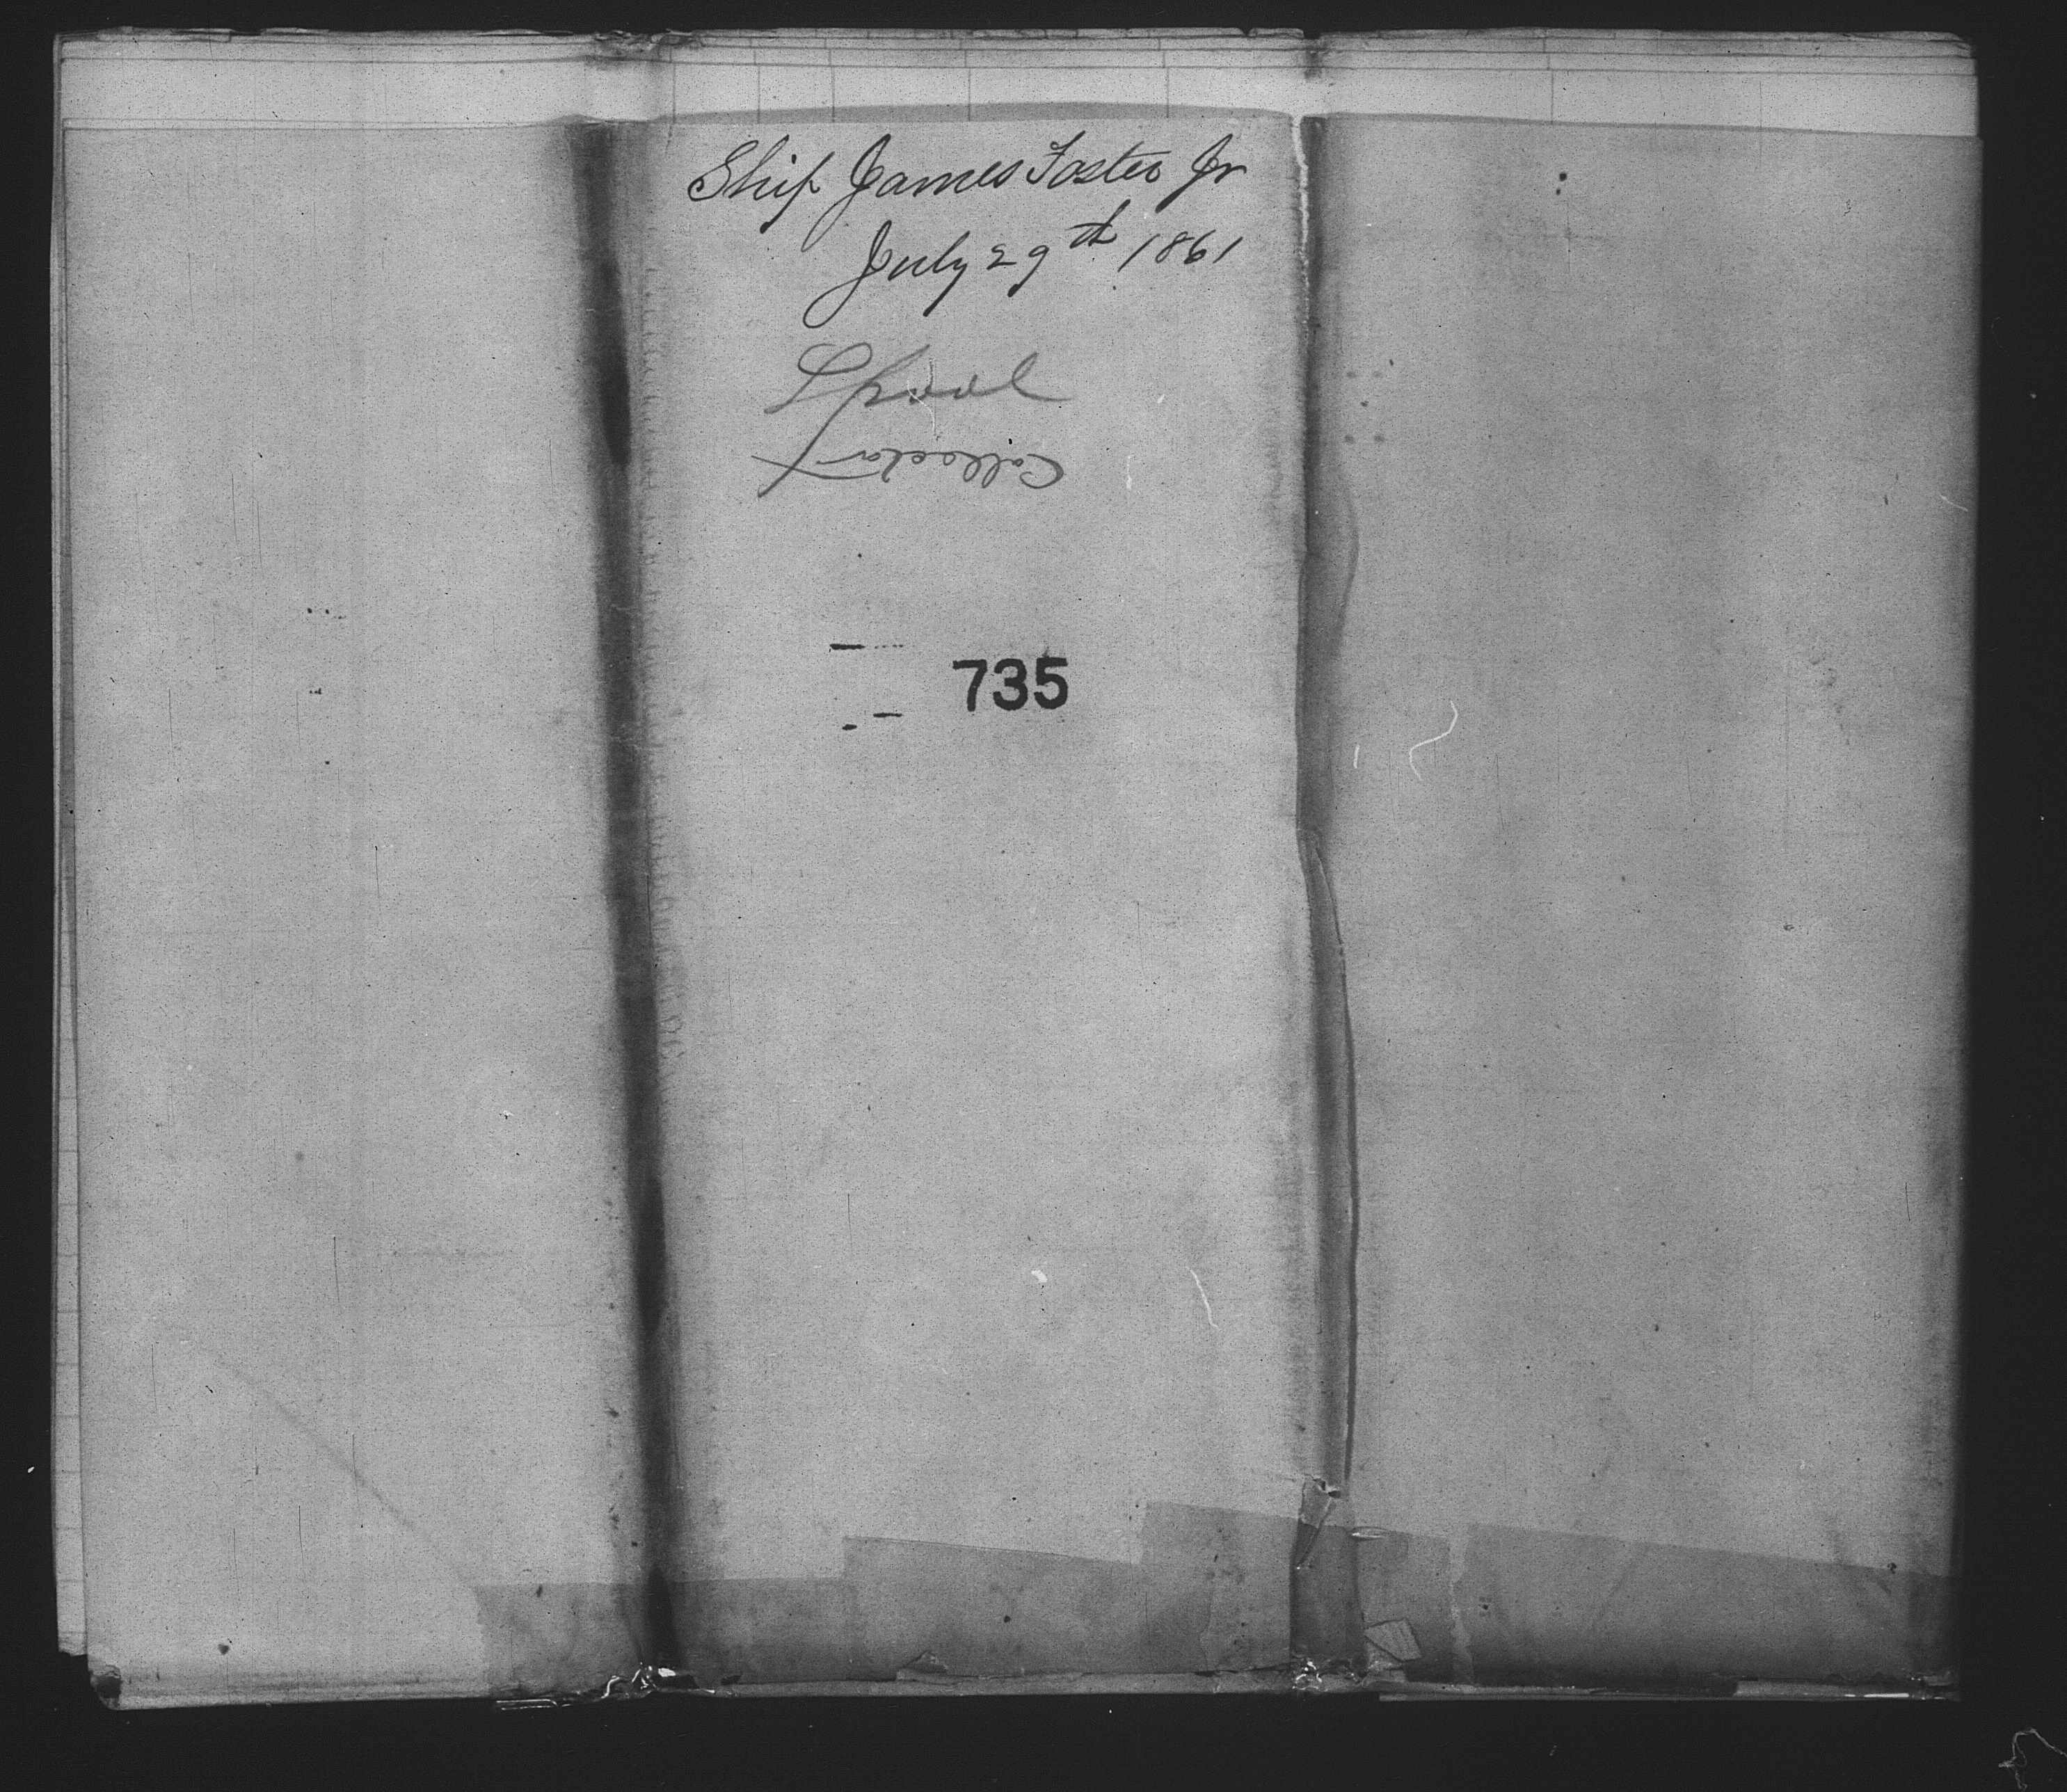 Ship James Foster Jr
July 29th 1861
Lpool
Collector
735